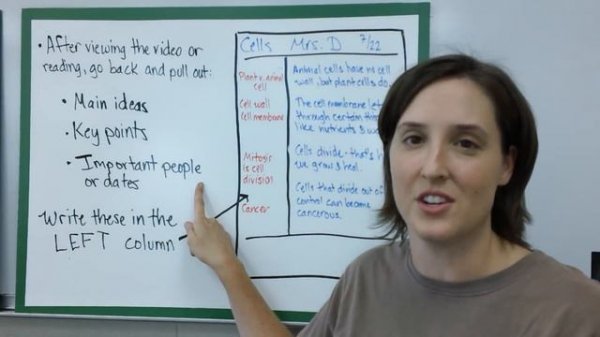 • After viewing the video or
reading, go back and pull out:
• Main ideas
• Key points
• Important people
or dates
Write these in the
LEFT column
Cells Mrs. D 7/22
Plant v. animal
cell
Cell wall
Cell membrane
Mitosis
is cell
division
Cancer
Animal cells have no cell
wall, but plant cells do.
The cell membrane
through certain
like nutrients &
Cells divide - that's
we grow & heal.
Cells that divide out of
control can become
cancerous.